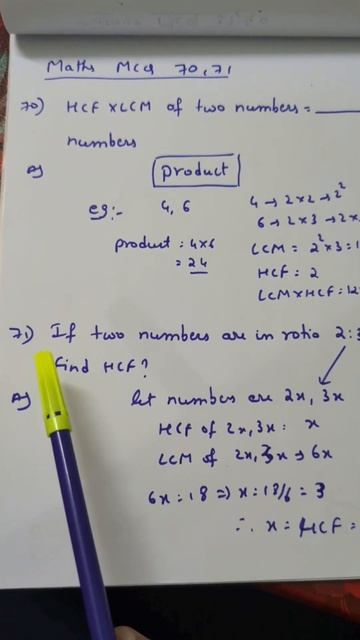 Maths MCQ 70,71
70) HCF x LCM of two numbers = ____
numbers
A) product
eg:- 4, 6
product : 4x6
= 24
4 → 2x2 → 2²
6 → 2x3 → 2x
LCM = 2²x3 = 1
HCF = 2
LCMxHCF = 12
71) If two numbers are in ratio 2:3
find HCF?
A) let numbers are 2x, 3x
HCF of 2x, 3x = x
LCM of 2x, 3x → 6x
6x = 18 => x = 18/6 = 3
∴ x = HCF =